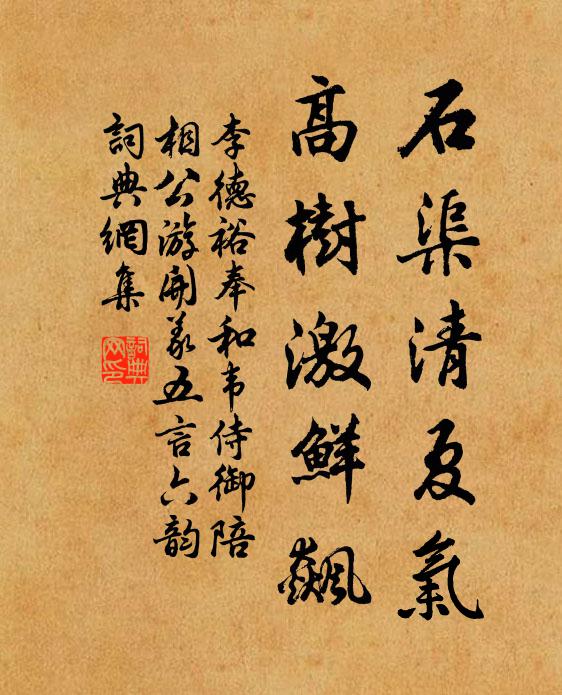 石渠清夏氣
高樹激鮮飆
李德裕奉和韦侍御陪
相公游開義五言六韵
詞典網集
詞典網印